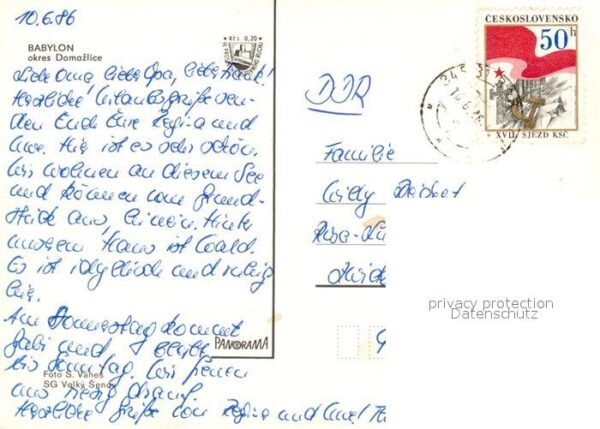 10.6.86
BABYLON
okres Domažlice
Kčs 0,20
Liebe Oma, lieber Opa, liebe
Herzliche Urlaubsgrüße sen-
den Euch Eure Regina und
Uwe. Hier ist es sehr schön.
Wir wohnen an diesem See
und können vom Grund-
stück aus, hinein. Hinter
unserem Haus ist Wald.
Es ist idyllisch und ruhig
hier.
Am Donnerstag kommt
Gabi und bleibt
bis Sonntag. Wir freuen
uns riesig darauf.
Herzliche Grüße von Regina und Uwe!
Foto S. Vaneš
SG Velký Šenov
PANORAMA
ČESKOSLOVENSKO
50h
XVII. SJEZD KSČ
345 31
DDR
Familie
Willy
Rosa-Lu
privacy protection
Datenschutz